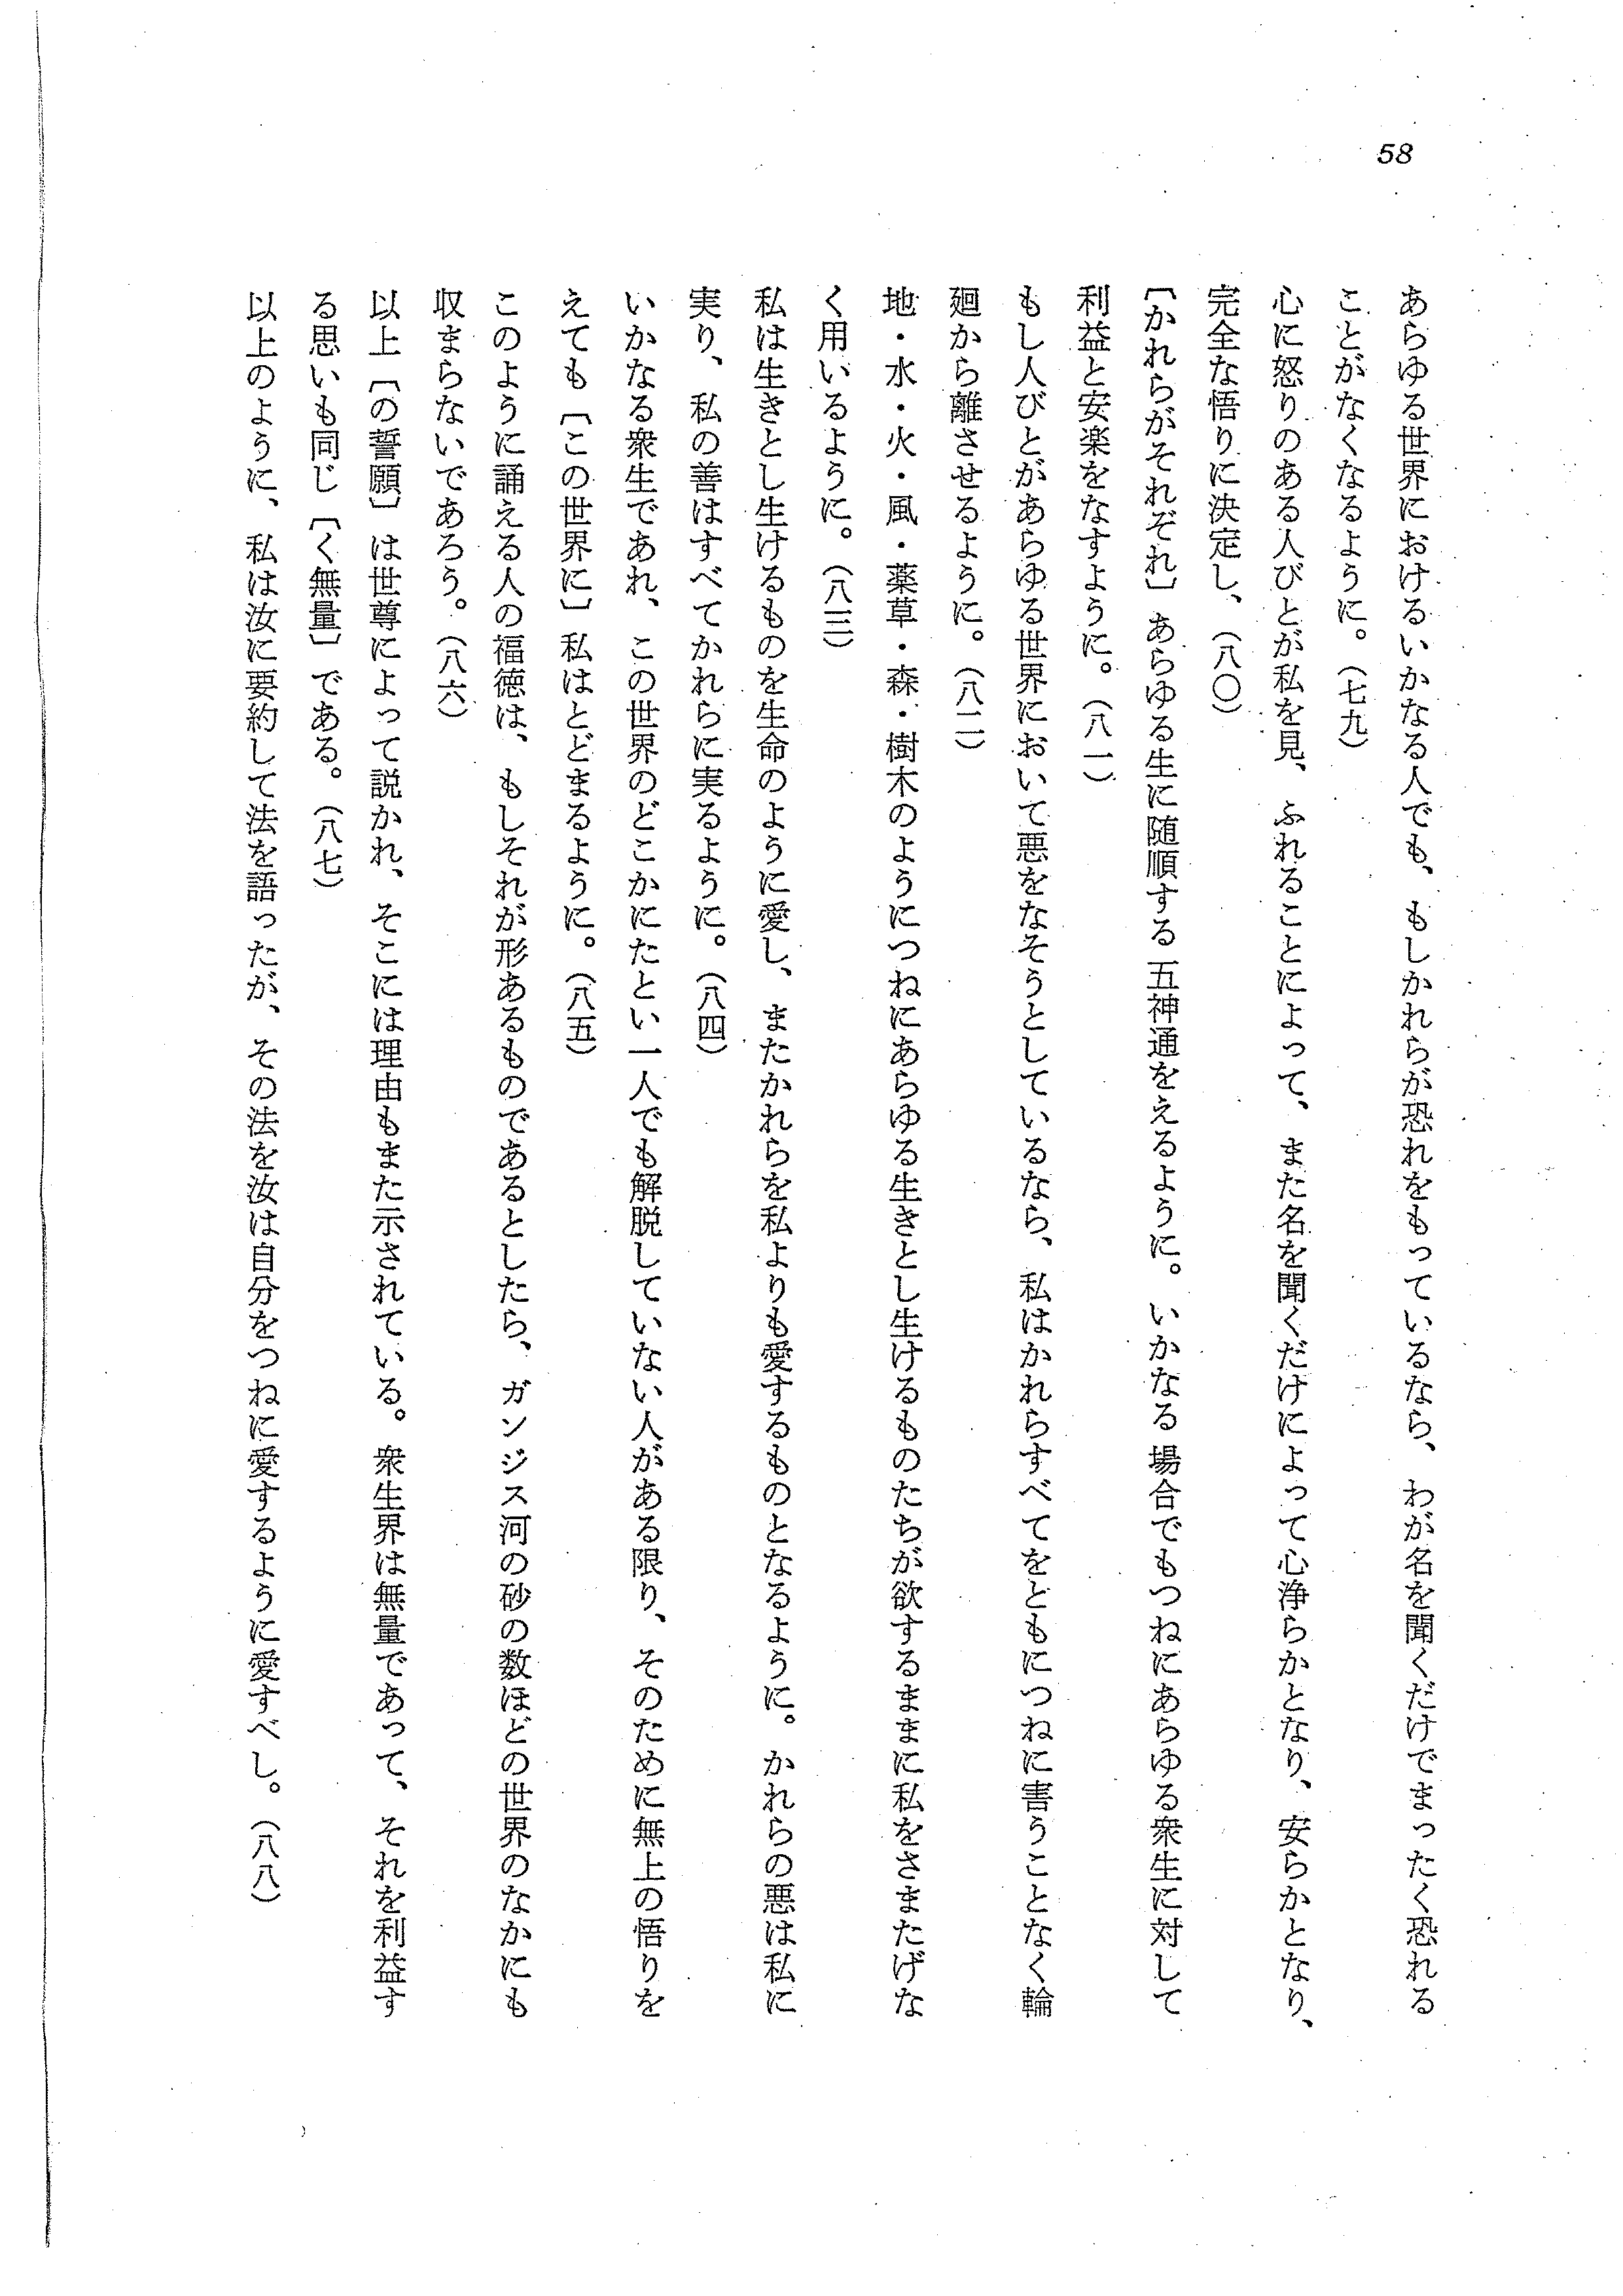 58
あらゆる世界におけるいかなる人でも、もしかれらが恐れをもっているなら、わが名を聞くだけでまったく恐れる
ことがなくなるように。（七九）
心に怒りのある人びとが私を見、ふれることによって、また名を聞くだけによって心浄らかとなり、安らかとなり、
完全な悟りに決定し、（八〇）
〔かれらがそれぞれ〕あらゆる生に随順する五神通をえるように。いかなる場合でもつねにあらゆる衆生に対して
利益と安楽をなすように。（八一）
もし人びとがあらゆる世界において悪をなそうとしているなら、私はかれらすべてをともにつねに害うことなく輪
廻から離させるように。（八二）
地・水・火・風・薬草・森・樹木のようにつねにあらゆる生きとし生けるものたちが欲するままに私をさまたげな
く用いるように。（八三）
私は生きとし生けるものを生命のように愛し、またかれらを私よりも愛するものとなるように。かれらの悪は私に
実り、私の善はすべてかれらに実るように。（八四）
いかなる衆生であれ、この世界のどこかにたとい一人でも解脱していない人がある限り、そのために無上の悟りを
えても〔この世界に〕私はとどまるように。（八五）
このように誦える人の福徳は、もしそれが形あるものであるとしたら、ガンジス河の砂の数ほどの世界のなかにも
収まらないであろう。（八六）
以上〔の誓願〕は世尊によって説かれ、そこには理由もまた示されている。衆生界は無量であって、それを利益す
る思いも同じ〔く無量〕である。（八七）
以上のように、私は汝に要約して法を語ったが、その法を汝は自分をつねに愛するように愛すべし。（八八）